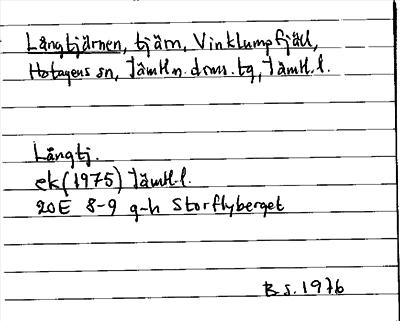 Långtjärnen, tjärn, Vinklumpfjäll,
Hotagens sn, Jämtl n. dms. tg, Jämtl. l.
Långtj.
ek (1975) Jämtl. l.
20E 8-9 g-h Storflyberget
B S. 1976